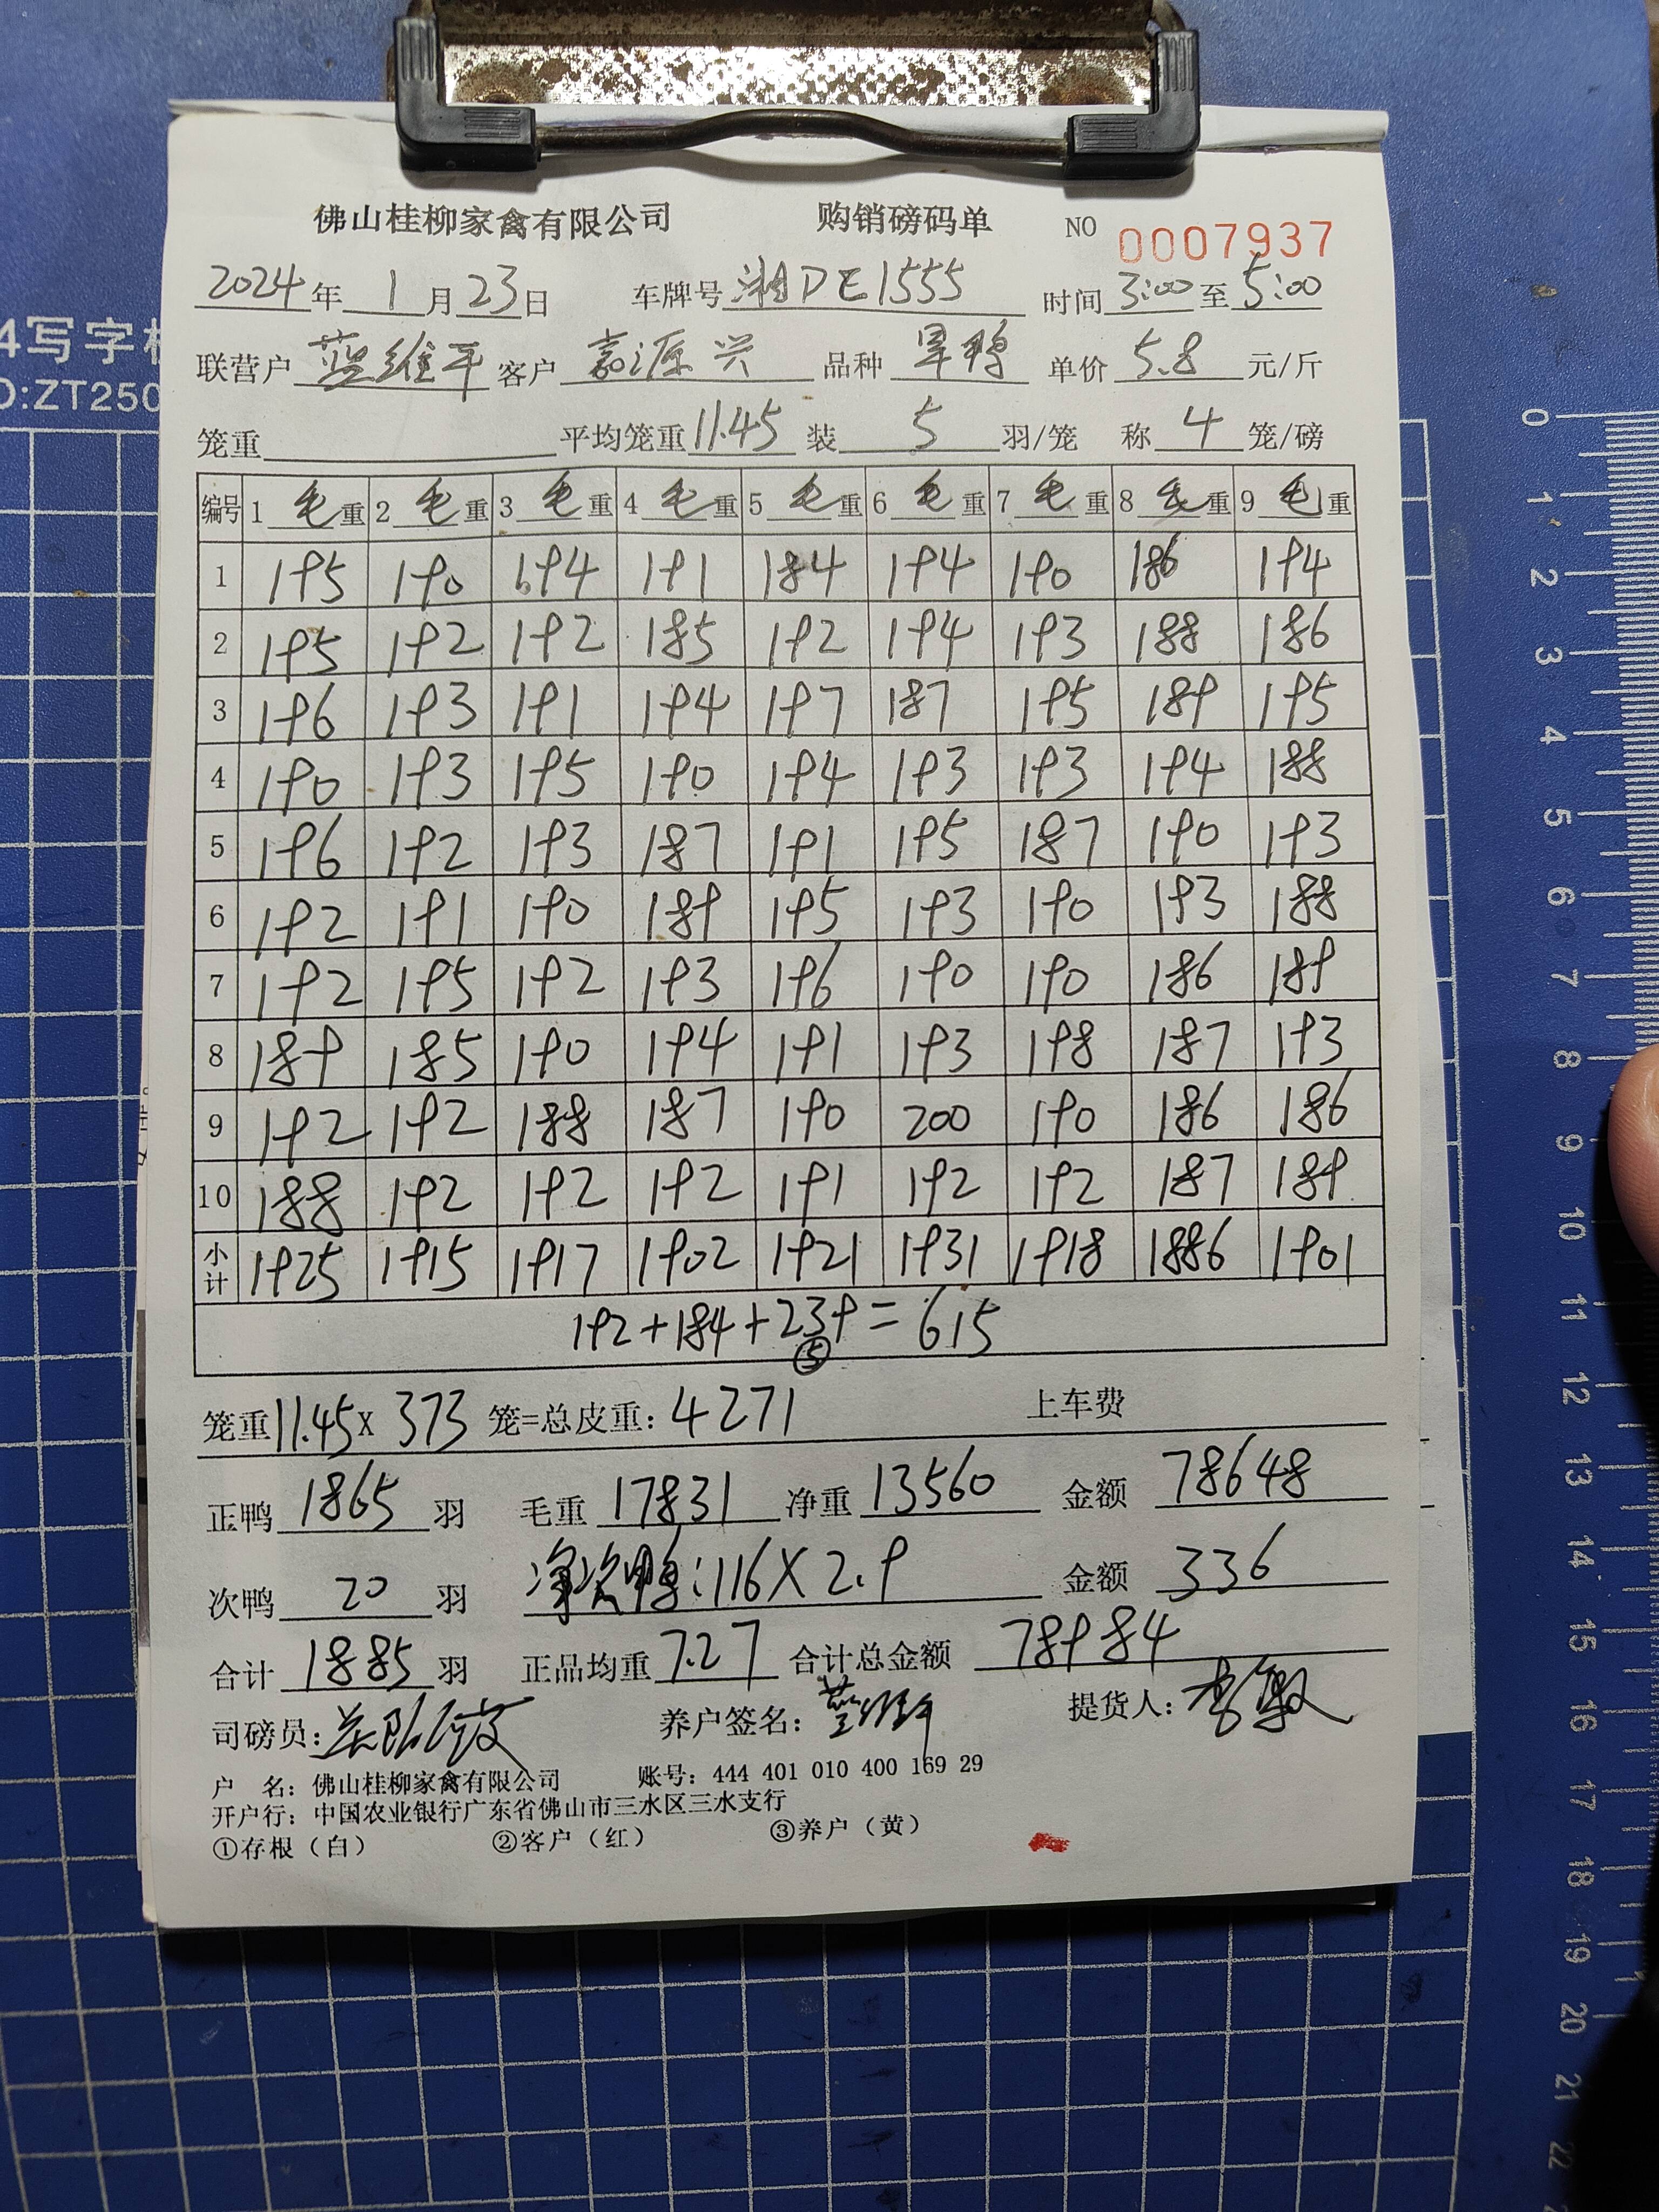 佛山桂柳家禽有限公司 购销磅码单 NO 0007937
2024年 1 月 23 日 车牌号 湘DE1555 时间 3:00 至 5:00
联营户 蓝维平 客户 嘉源兴 品种 旱鸭 单价 5.8 元/斤
笼重 平均笼重 11.45 装 5 羽/笼 称 4 笼/磅
编号 1 毛重 2 毛重 3 毛重 4 毛重 5 毛重 6 毛重 7 毛重 8 毛重 9 毛重
1 195 190 194 191 184 194 190 186 194
2 195 192 192 185 192 194 193 188 186
3 196 193 191 194 197 187 195 189 195
4 190 193 195 190 194 193 193 194 188
5 196 192 193 187 191 195 187 190 193
6 192 191 190 189 195 193 190 193 188
7 192 195 192 193 196 190 190 186 189
8 189 185 190 194 191 193 198 187 193
9 192 192 188 187 190 200 190 186 186
10 188 192 192 192 191 192 192 187 189
小计 1925 1915 1917 1902 1921 1931 1918 1886 1901
192+184+239=615
⑤
笼重 11.45 X 373 笼=总皮重: 4271 上车费
正鸭 1865 羽 毛重 17831 净重 13560 金额 78648
次鸭 20 羽 净次鸭:116X2.9 金额 336
合计 1885 羽 正品均重 7.27 合计总金额 78984
司磅员: 养户签名: 蓝维平 提货人:
户 名: 佛山桂柳家禽有限公司 账号: 444 401 010 400 169 29
开户行: 中国农业银行广东省佛山市三水区三水支行
①存根（白） ②客户（红） ③养户（黄）
4写字
D:ZT250
0
1
2
3
4
5
6
7
8
9
10
11
12
13
14
15
16
17
18
19
20
21
22